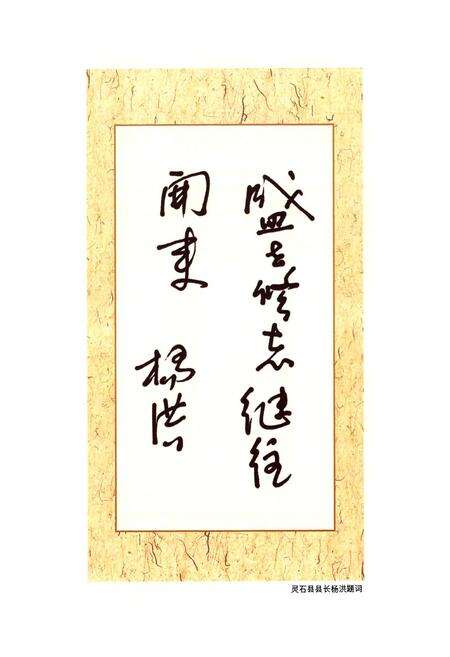 盛世修志继往
開来
杨洪
灵石县县长杨洪题词